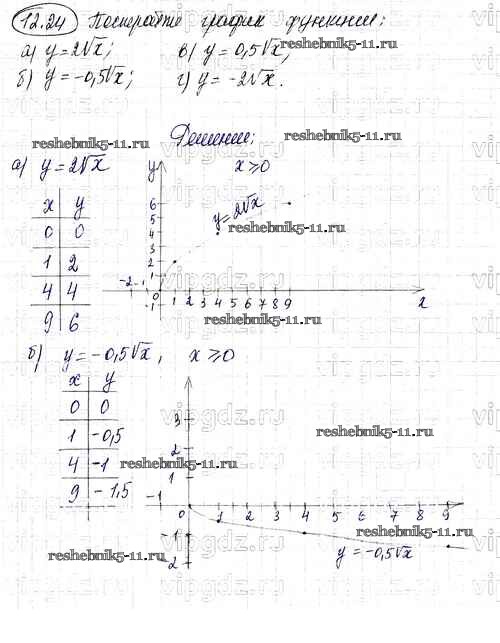 12.24 Постройте график функции:
а) y=2√x; в) y=0,5√x;
б) y=-0,5√x; г) y=-2√x.
Решение:
reshebnik5-11.ru
reshebnik5-11.ru
vipgdz.ru
а) y=2√x
x≥0
x y
0 0
1 2
4 4
9 6
y
6
5
4
3
2
1
-2 -1 0 1 2 3 4 5 6 7 8 9 x
-1
y=2√x
reshebnik5-11.ru
vipgdz.ru
reshebnik5-11.ru
б) y=-0,5√x, x≥0
x y
0 0
1 -0,5
4 -1
9 -1,5
3
2
1
-1 0 1 2 3 4 5 6 7 8 9
-1
-2
y=-0,5√x
vipgdz.ru
reshebnik5-11.ru
reshebnik5-11.ru
vipgdz.ru
reshebnik5-11.ru
reshebnik5-11.ru
vipgdz.ru